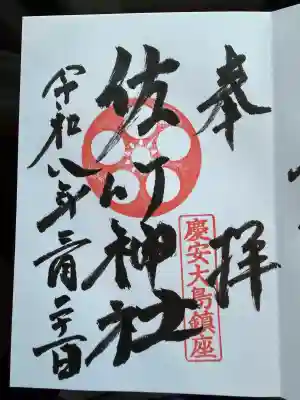 奉拝
慶安大島鎮座
佐竹神社
令和八年二月二十一日